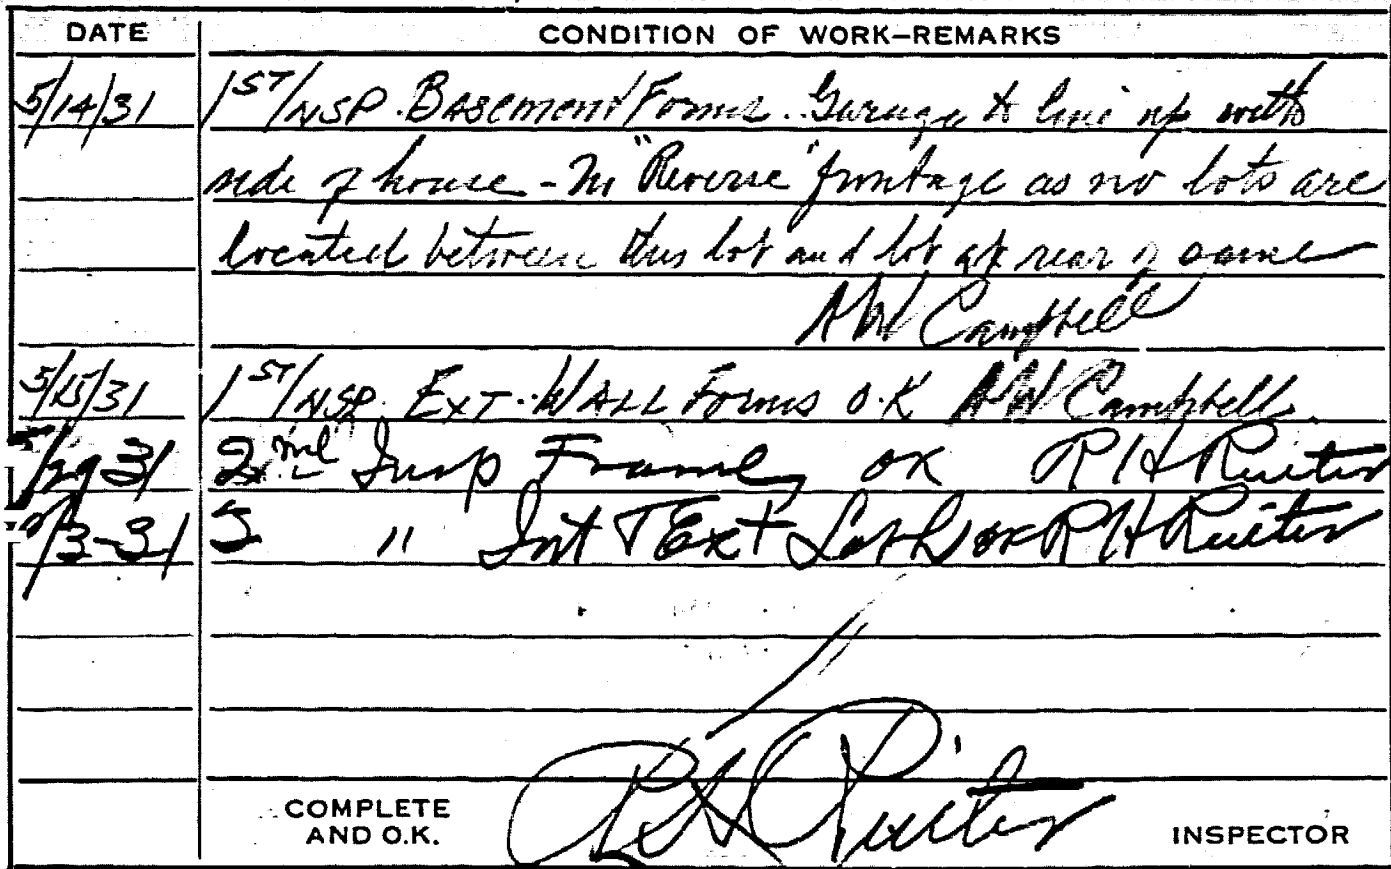 DATE CONDITION OF WORK—REMARKS
5/14/31 1ST INSP. BASEMENT Forms. Garage to line up with
side of house - In "Reverse" frontage as no lots are
located between this lot and lot at rear of same
AW Campbell
5/15/31 1ST INSP. EXT. WALL Forms O.K AW Campbell.
5/29 31 2nd Insp Frame OK R H Ruiter
/3-31 3 " Int & Ext Lath OK R H Ruiter
COMPLETE AND O.K. R H Ruiter INSPECTOR